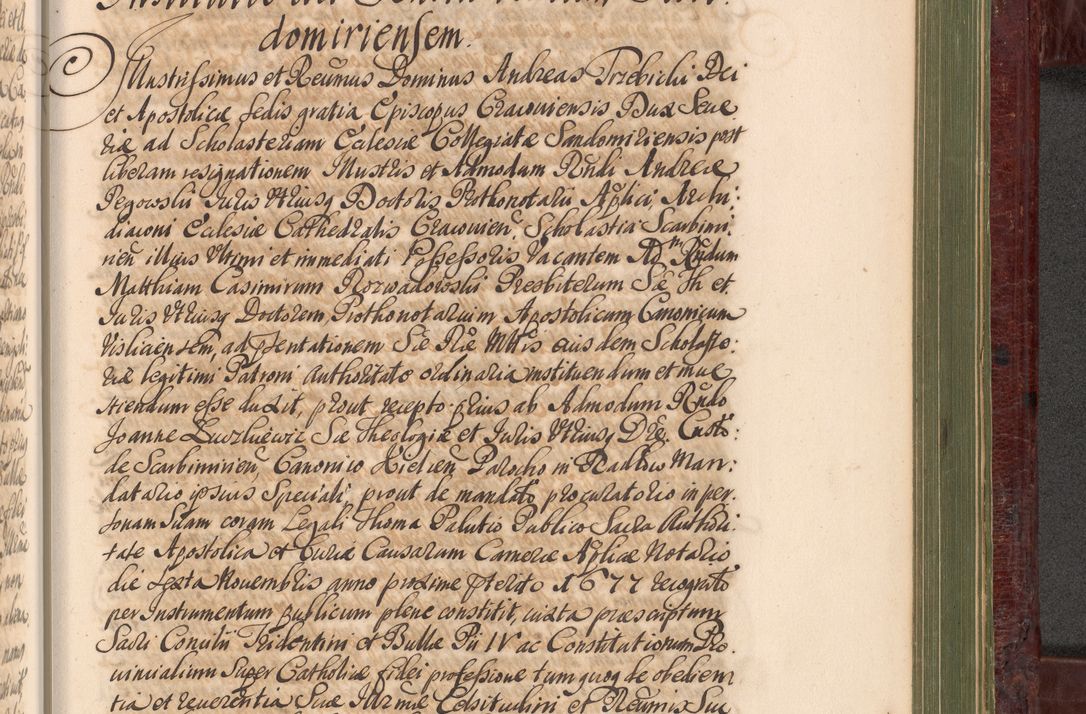 domiriensem.
Illustrissimus et Reu̅mus Dominus Andreas Trzebicki Dei
et Apostolicæ Sedis gratia Episcopus Cracouiensis Dux Seue
riæ ad Scholasteriam Ecclesiæ Collegiatæ Sandomiriensis post
liberam resignationem Illustris et Admodum Rn̅di Andreæ
Pegowski Iuris Utriusq Doctoris Prothonotarii Ap̅lici, Archi:
diaconi Ecclesiæ Cathedralis Cracouien̅, Scholastici Scarbimi:
rien̅ illius Ultimi et immediati Possessoris Vacantem Adm̅ Rn̅dum
Matthiam Casimirum Rozwadowski Presbiterum Sæ Th et
Iuris Utriusq Doctorem, Prothonotarium Apostolicum Canonicum
Visliciensem, ad p̅sentationem Sæ Ræ Mttis eiusdem Scholaste:
riæ legitimi Patroni Authoritate ordinaria instituendum et inue
stiendum esse duxit, prout recepto prius ab Admodum Rn̅do
Joanne Sæ Theologiæ et Iuris Utriusq Dre, Custo:
de Scarbimirien̅, Canonico Kielcen̅ Parocho in Radkow Man:
datario ipsius Speciali, prout de mandato procuratorio in per:
sonam Suam coram Legali Thoma Palutio Publico Sacra Authori
tate Apostolica et Curiæ Causarum Cameræ Ap̅licæ Notario
die Sexta Nouembris anno proxime p̅terito 1677 recognito
per Instrumentum publicum plene constitit, iuxta præscriptum
Sacri Concilii Tridentini et Bullæ Pii IV ac Constitutionum Pro
uincialium Super Catholicæ fidei professione tum quoq de obedien
tia et reuerentia Suæ Celsitudini et Reu̅mis Suc